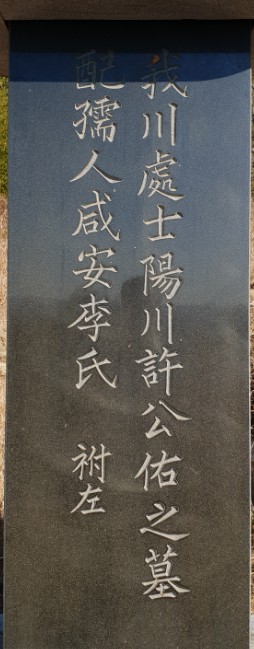 我川處士陽川許公佑之墓
配孺人咸安李氏 祔左